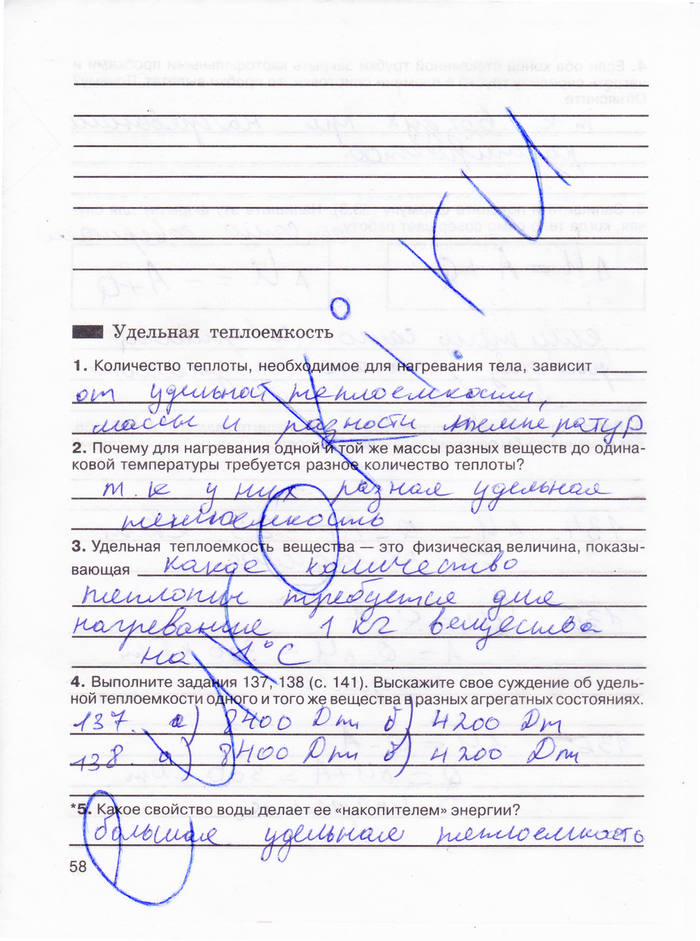 Удельная теплоемкость
1. Количество теплоты, необходимое для нагревания тела, зависит
от удельной теплоемкости,
массы и разности температур
2. Почему для нагревания одной и той же массы разных веществ до одина-
ковой температуры требуется разное количество теплоты?
т.к у них разная удельная
теплоемкость
3. Удельная теплоемкость вещества — это физическая величина, показы-
вающая какое количество
теплоты требуется для
нагревание 1 кг вещества
на 1°С
4. Выполните задания 137, 138 (с. 141). Выскажите свое суждение об удель-
ной теплоемкости одного и того же вещества в разных агрегатных состояниях.
137. а) 8400 Дж б) 4200 Дж
138. а) 8400 Дж б) 4200 Дж
*5. Какое свойство воды делает ее «накопителем» энергии?
большая удельная теплоемкость
58